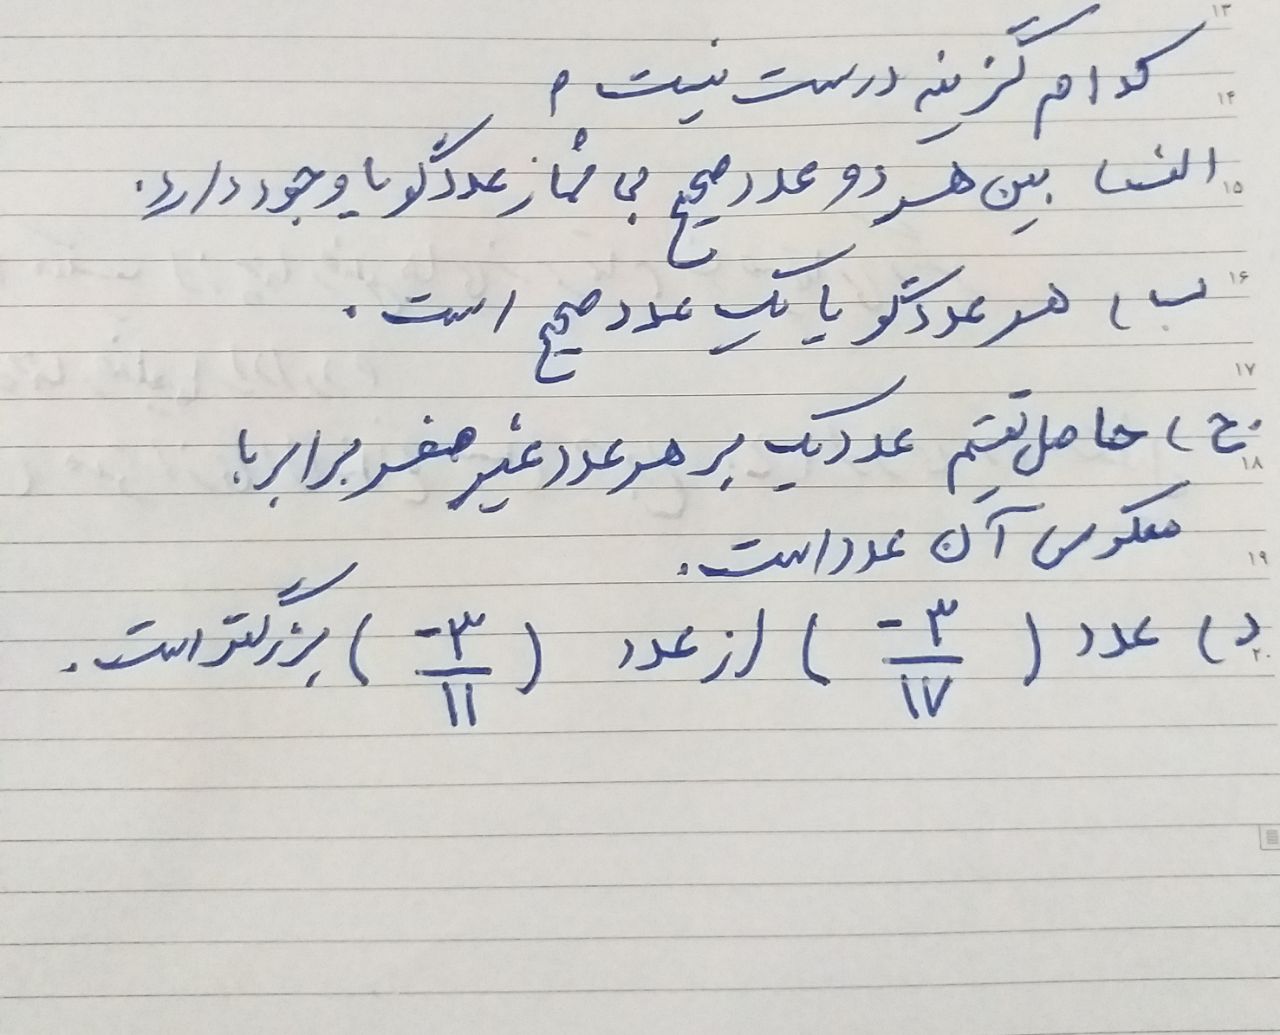 ۱۳
کدام گزینه درست نیست ؟
۱۴
الف) بین هر دو عدد صحیح بی شمار عدد گویا وجود دارد.
۱۵
ب) هر عدد گویا یک عدد صحیح است.
۱۶
۱۷
ج) حاصل تقسیم عدد یک بر هر عدد غیر صفر برابر با
۱۸
معکوس آن عدد است.
۱۹
د) عدد (-۳/۱۷) از عدد (-۳/۱۱) بزرگتر است.
۲۰